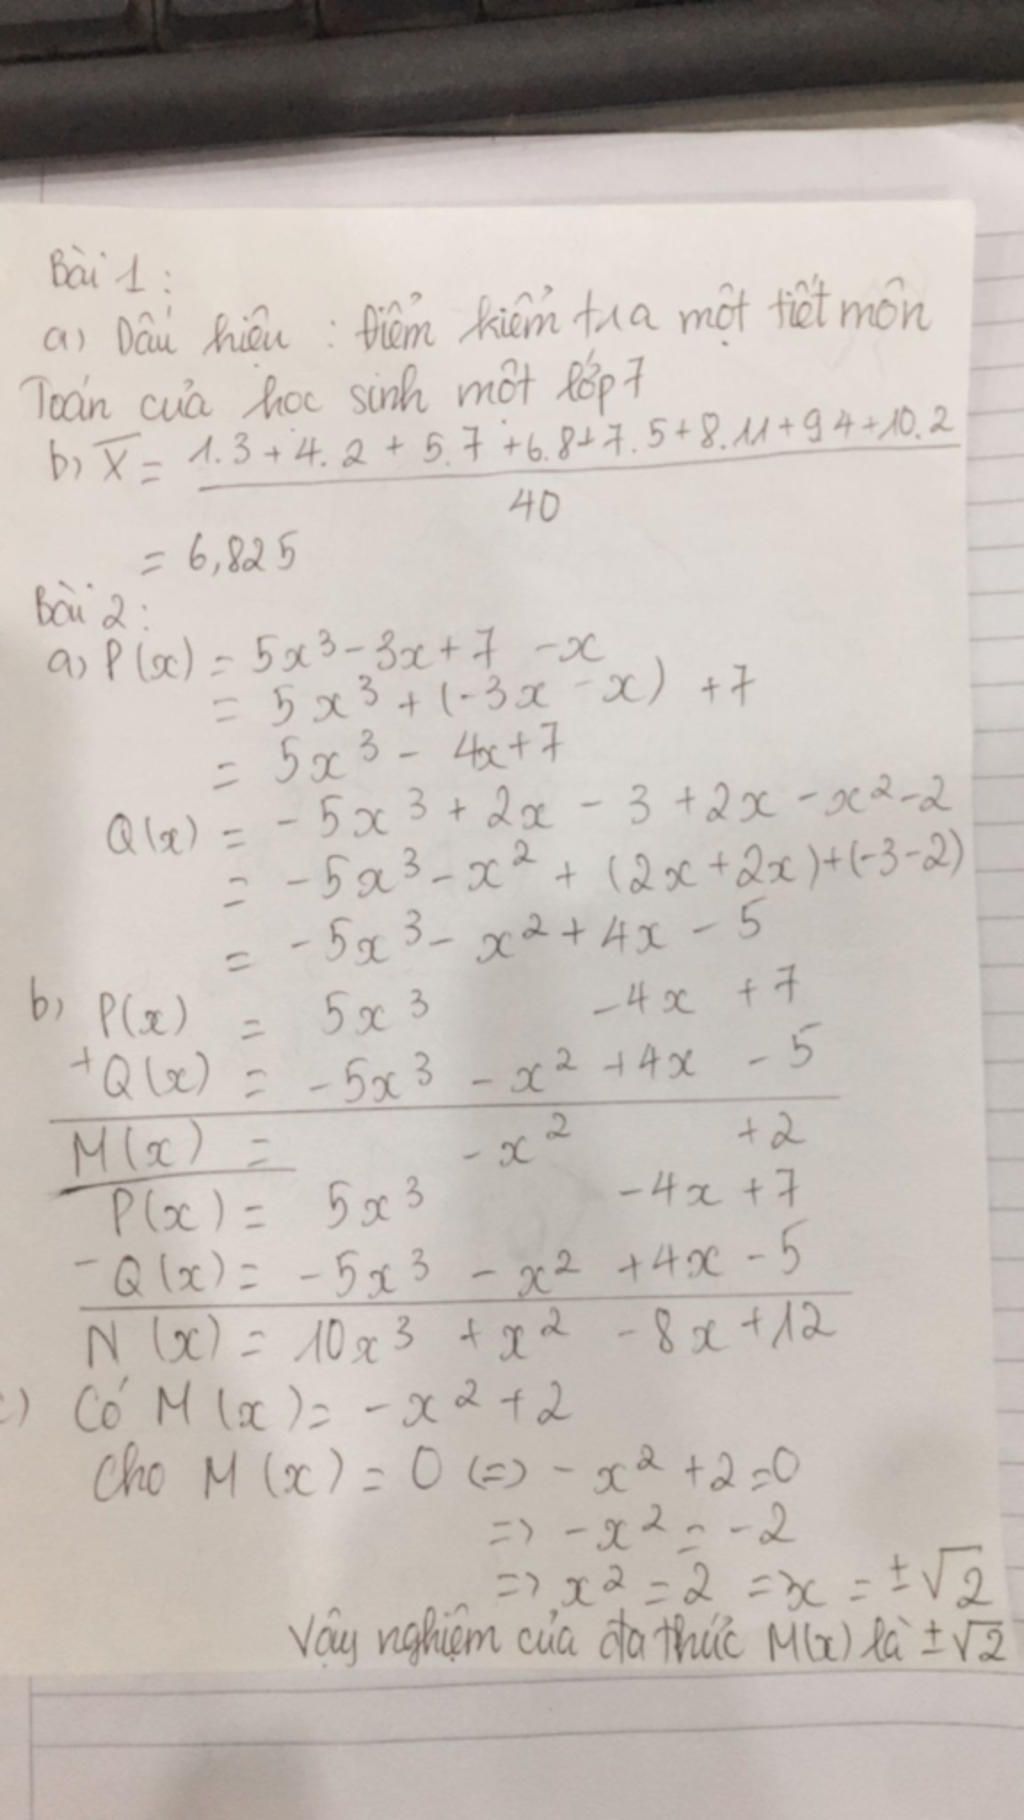 Bài 1:
a) Dấu hiệu : Điểm kiểm tra một tiết môn
Toán của học sinh một lớp 7
b) X̅ = (1.3+4.2+5.7+6.8+7.5+8.11+9 4+10.2)/40
= 6,825
Bài 2:
a) P(x) = 5x³-3x+7 -x
= 5x³+(-3x -x) +7
= 5x³- 4x+7
Q(x) = -5x³+2x-3+2x-x²-2
= -5x³-x²+(2x+2x)+(-3-2)
= -5x³-x²+4x-5
b) P(x) = 5x³ -4x +7
+Q(x) = -5x³ -x² +4x -5
M(x) = -x² +2
P(x) = 5x³ -4x +7
-Q(x) = -5x³ -x² +4x -5
N(x) = 10x³ +x² -8x +12
c) Có M(x) = -x²+2
Cho M(x) = 0 (=) -x²+2=0
=> -x² = -2
=> x² = 2 => x = ±√2
Vậy nghiệm của đa thức M(x) là ±√2